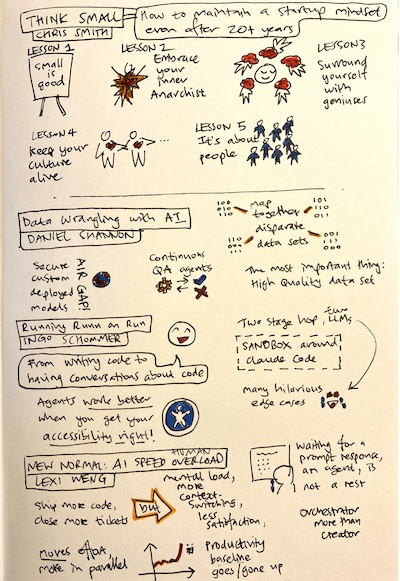 THINK SMALL
CHRIS SMITH
How to maintain a startup mindset
even after 20+ years
LESSON 1
Small
is
good
LESSON 2
Embrace
your
inner
Anarchist
LESSON 3
Surround
yourself
with
geniuses
LESSON 4
Keep your
culture
alive
...
LESSON 5
It's about
people
Data Wrangling with AI
DANIEL SHANNON
map
together
disparate
data sets
Secure
custom
deployed
models
AIR GAP!
Continuous
QA agents
The most important thing:
High Quality data set
Running Runn on Run
INGO SCHOMMER
From writing code to
having conversations about code
Agents work better
when you get your
accessibility right!
Two stage hop, two LLMs
SANDBOX around
Claude Code
many hilarious
edge cases
NEW NORMAL: AI SPEED HUMAN OVERLOAD
LEXI WENG
Ship more code,
close more tickets
BUT
mental load,
more
context
switching,
less
satisfaction,
waiting for a
prompt response,
an agent, is
not a rest
orchestrator
more than
creator
moves effort,
more in parallel
Productivity
baseline
goes/gone up